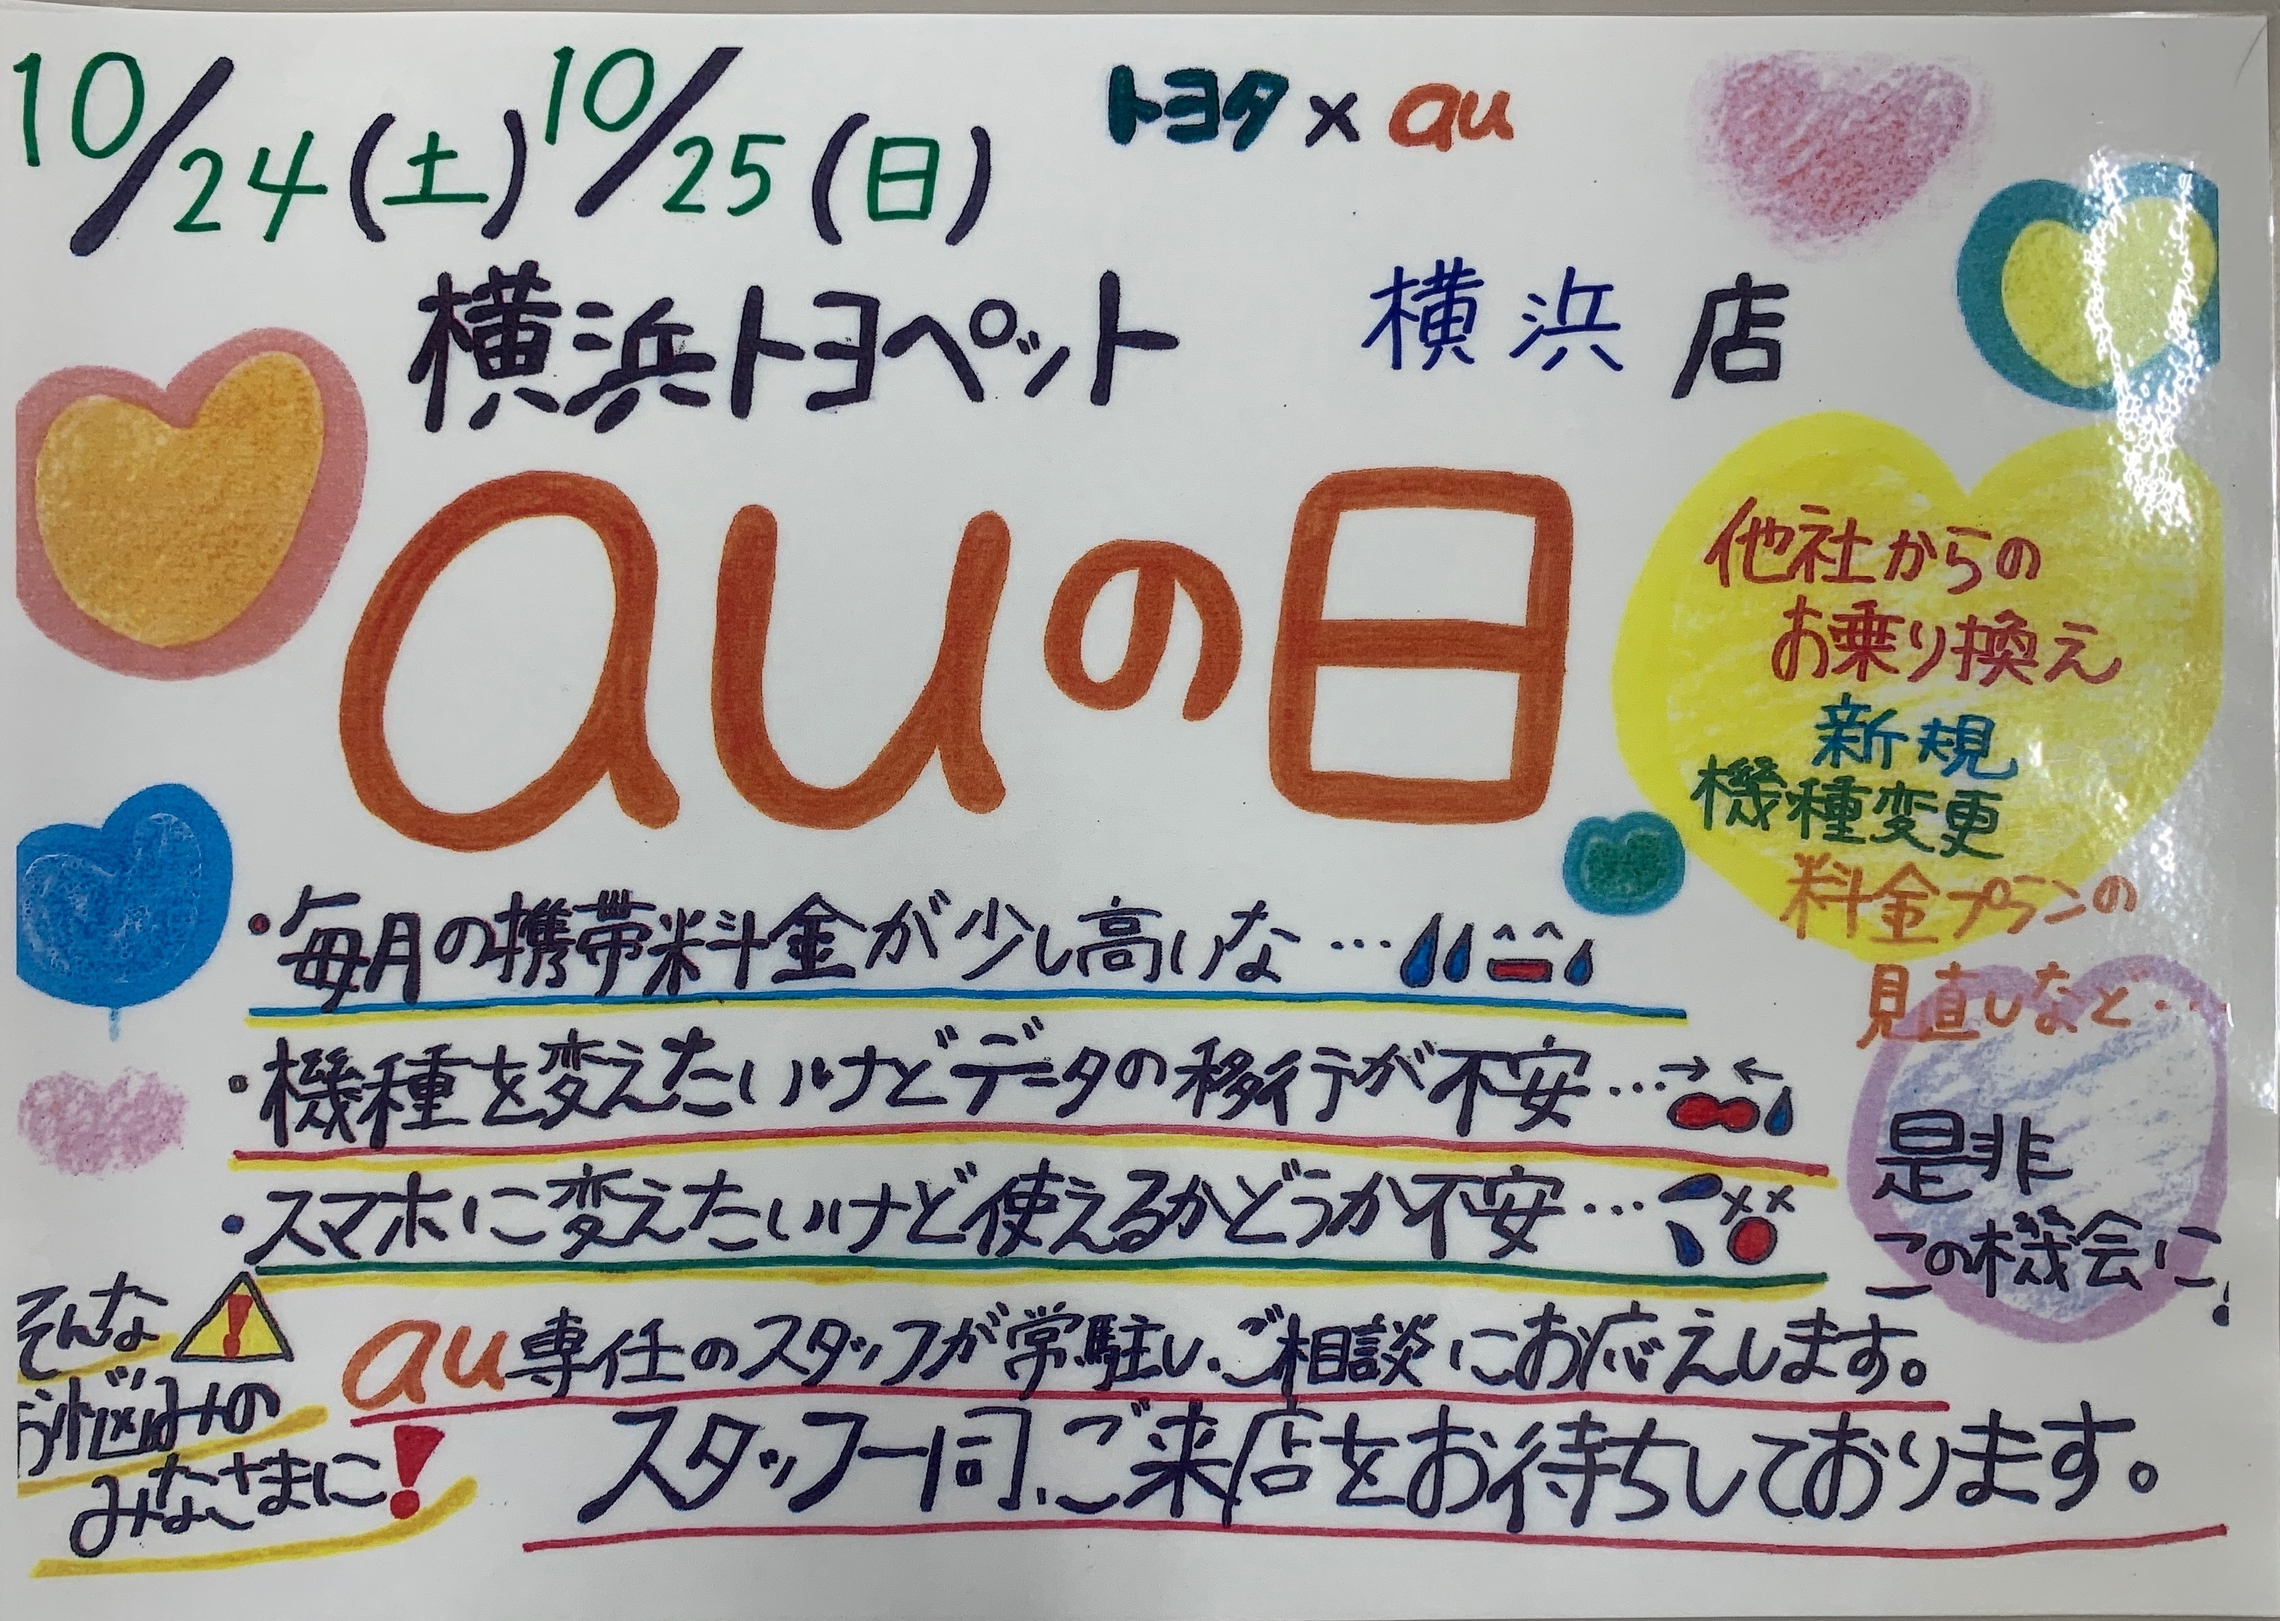 10/24(土) 10/25(日)
トヨタ×au
横浜トヨペット 横浜店
auの日
他社からの
お乗り換え
新規
機種変更
料金プランの
見直しなど・・
・毎月の携帯料金が少し高いな…
・機種を変えたいけどデータの移行が不安…
・スマホに変えたいけど使えるかどうか不安…
是非
この機会に!
そんな
お悩みの
みなさまに!
au専任のスタッフが常駐し、ご相談にお応えします。
スタッフ一同、ご来店をお待ちしております。